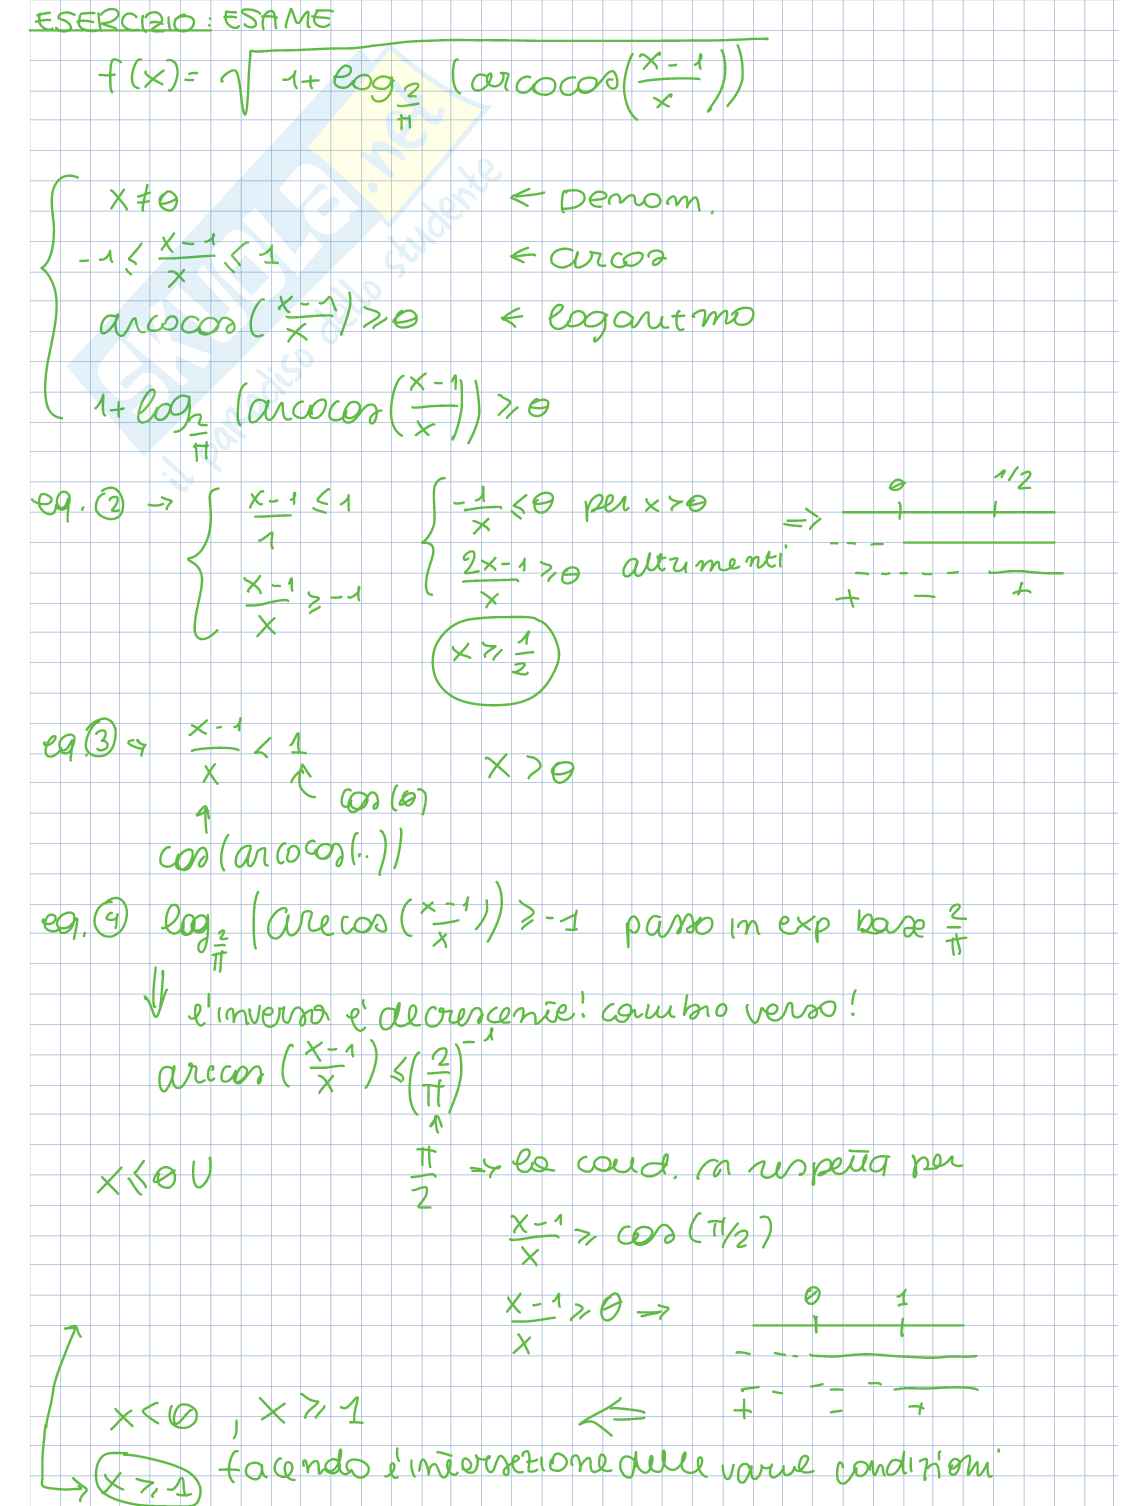 ESERCIZIO: ESAME
f(x) = √(1 + log_{2/π} (arcocos((x-1)/x)))
x ≠ 0 ← Denom.
-1 ≤ (x-1)/x ≤ 1 ← arcos
arcocos((x-1)/x) ≥ 0 ← logaritmo
1 + log_{2/π} (arcocos((x-1)/x)) ≥ 0
eq. ② → { (x-1)/1 ≤ 1 { -1/x ≤ 0 per x > 0 ⇒ 0 1/2
(x-1)/x ≥ -1 (2x-1)/x ≥ 0 altrimenti + - +
x ≥ 1/2
eq. ③ → (x-1)/x < 1 x > 0
cos(0)
cos(arcocos(..))
eq. ④ log_{2/π} (arccos((x-1)/x)) ≥ -1 passo in exp base 2/π
⇓ l'inversa è decrescente! cambio verso!
arccos((x-1)/x) ≤ (2/π)^{-1}
x ≤ 0 ∪ π/2 → la cond. si rispetta per
(x-1)/x ≥ cos(π/2)
(x-1)/x ≥ 0 → 0 1
x < 0, x ≥ 1 ⇐ + - +
x ≥ 1 facendo l'intersezione delle varie condizioni
SKUOLA.net
il paradiso dello studente